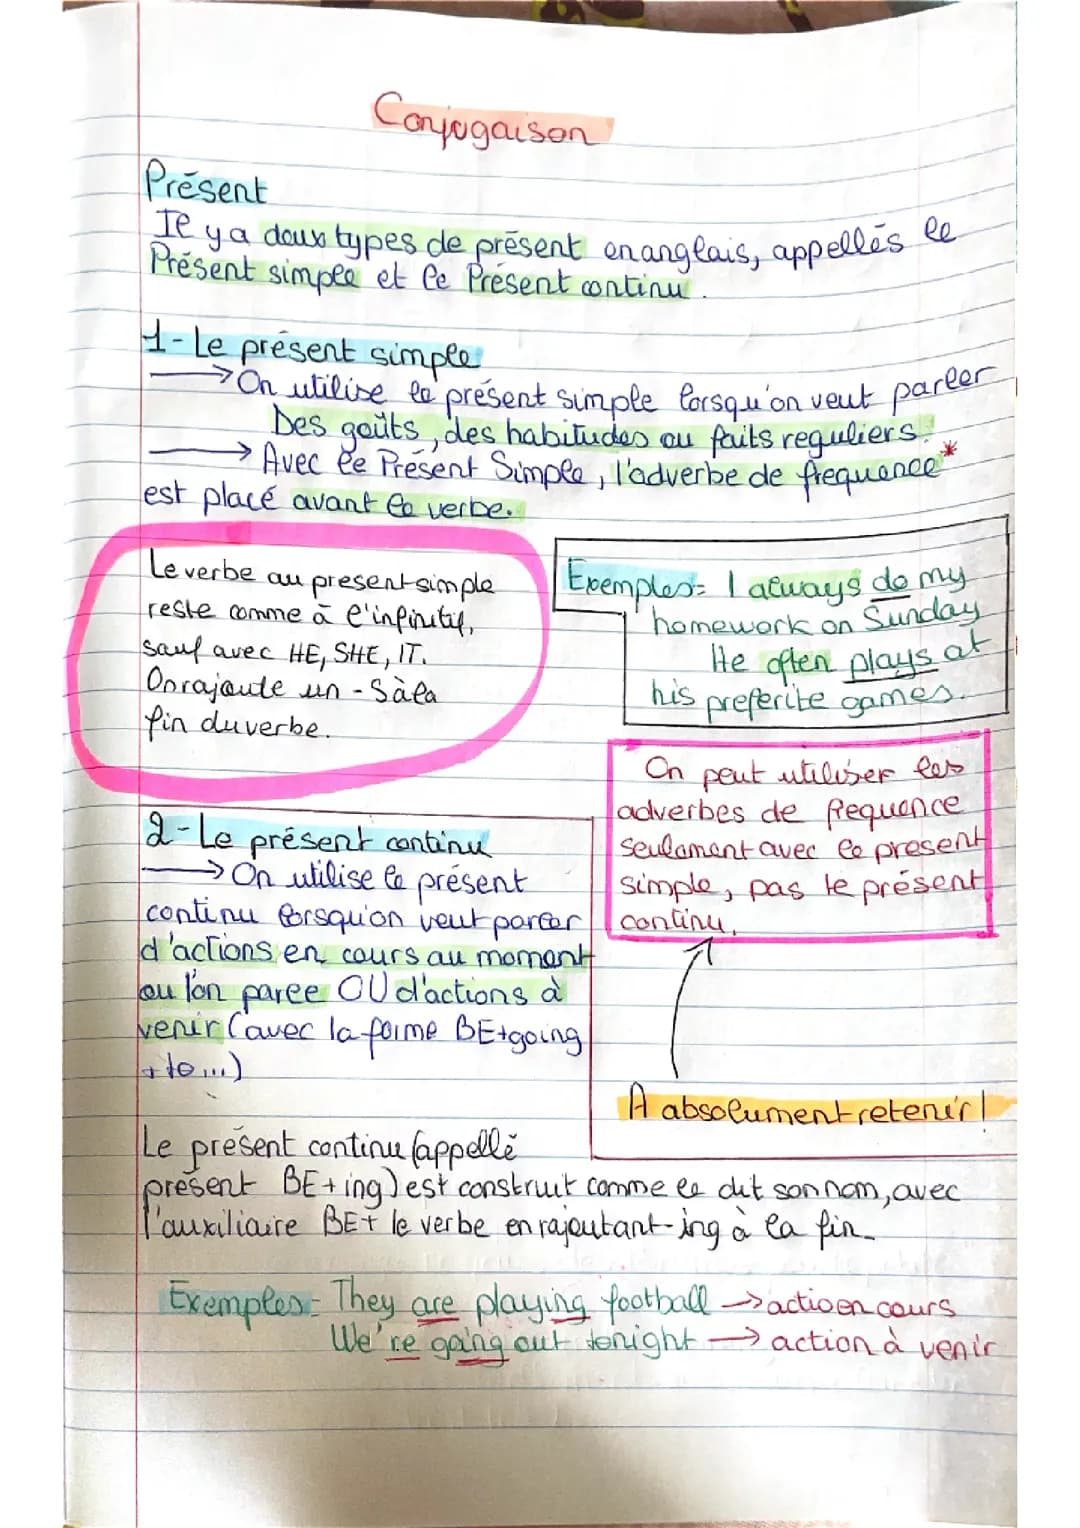 Conjugaison
Présent
Il y a deux types de présent en anglais, appellés le
Présent simple et le Présent continu.
1- Le présent simple
→ On utilise le présent simple lorsqu'on veut parler
Des goûts, des habitudes ou faits reguliers.
→ Avec le Présent Simple, l'adverbe de frequence*
est placé avant le verbe.
Le verbe au present simple
reste comme à l'infinitif,
sauf avec HE, SHE, IT.
On rajoute un -S à la
fin du verbe.
Exemples= I always do my
homework on Sunday
He often plays at
his preferite games.
On peut utiliser les
adverbes de frequence
seulement avec le present
simple, pas le présent
continu.
A absolument retenir!
2- Le présent continu
→ On utilise le présent
continu lorsqu'on veut parler
d'actions en cours au moment
ou l'on parle OU d'actions à
venir (avec la forme BE+going
+ to...)
Le présent continu (appellé
présent BE+ing) est construit comme le dit son nom, avec
l'auxiliaire BE+ le verbe en rajoutant -ing à la fin.
Exemples= They are playing football → action en cours
We're going out tonight → action à venir